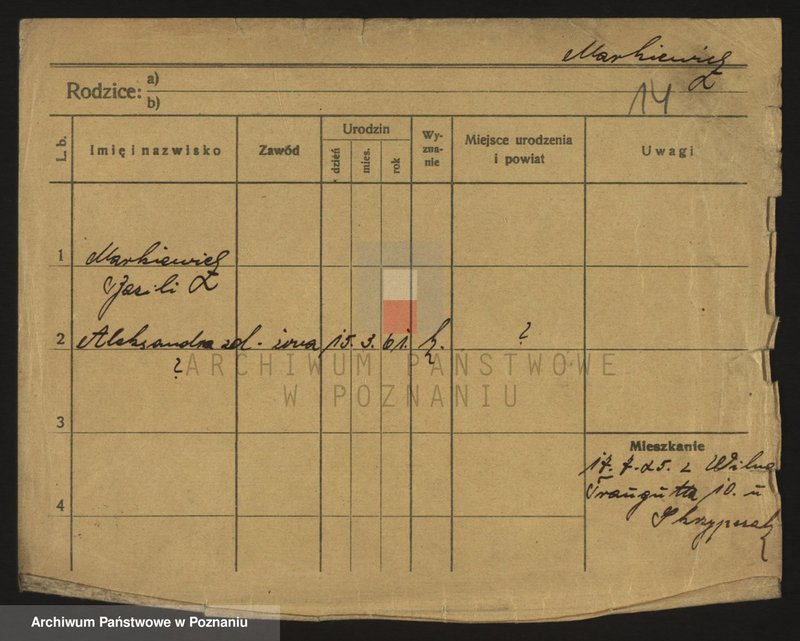 Markiewicz
Rodzice: a)
b)
14
L. b.
Imię i nazwisko
Zawód
Urodzin
dzień
mies.
rok
Wy-
zna-
nie
Miejsce urodzenia
i powiat
Uwagi
1
Markiewicz
2
Aleksandra żona 15. 3. 61. k. ?
?
ARCHIWUM PAŃSTWOWE
W POZNANIU
3
Mieszkanie
17. 7. 25. z Wilna
Traugutta 10. u
4
Archiwum Państwowe w Poznaniu